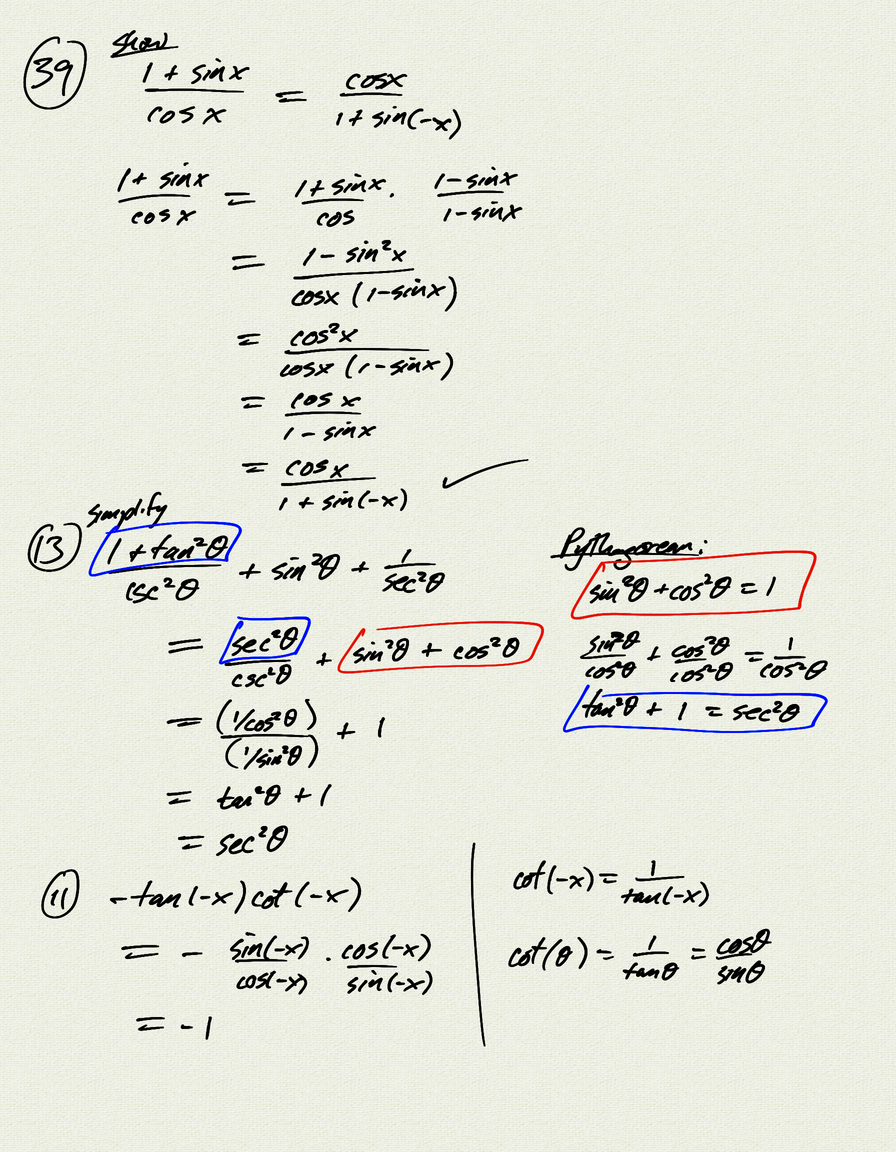 39 Show
(1 + sin x)/(cos x) = (cos x)/(1 + sin(-x))
(1 + sin x)/(cos x) = (1 + sin x)/(cos) · (1 - sin x)/(1 - sin x)
= (1 - sin²x)/(cos x (1 - sin x))
= (cos²x)/(cos x (1 - sin x))
= (cos x)/(1 - sin x)
= (cos x)/(1 + sin(-x)) ✓
13 Simplify
(1 + tan²θ)/(csc²θ) + sin²θ + 1/(sec²θ)
= (sec²θ)/(csc²θ) + sin²θ + cos²θ
= (1/cos²θ)/(1/sin²θ) + 1
= tan²θ + 1
= sec²θ
Pythagorean:
sin²θ + cos²θ = 1
(sin²θ)/(cos²θ) + (cos²θ)/(cos²θ) = 1/(cos²θ)
tan²θ + 1 = sec²θ
11 -tan(-x)cot(-x)
= - (sin(-x))/(cos(-x)) · (cos(-x))/(sin(-x))
= -1
cot(-x) = 1/(tan(-x))
cot(θ) = 1/(tanθ) = (cosθ)/(sinθ)